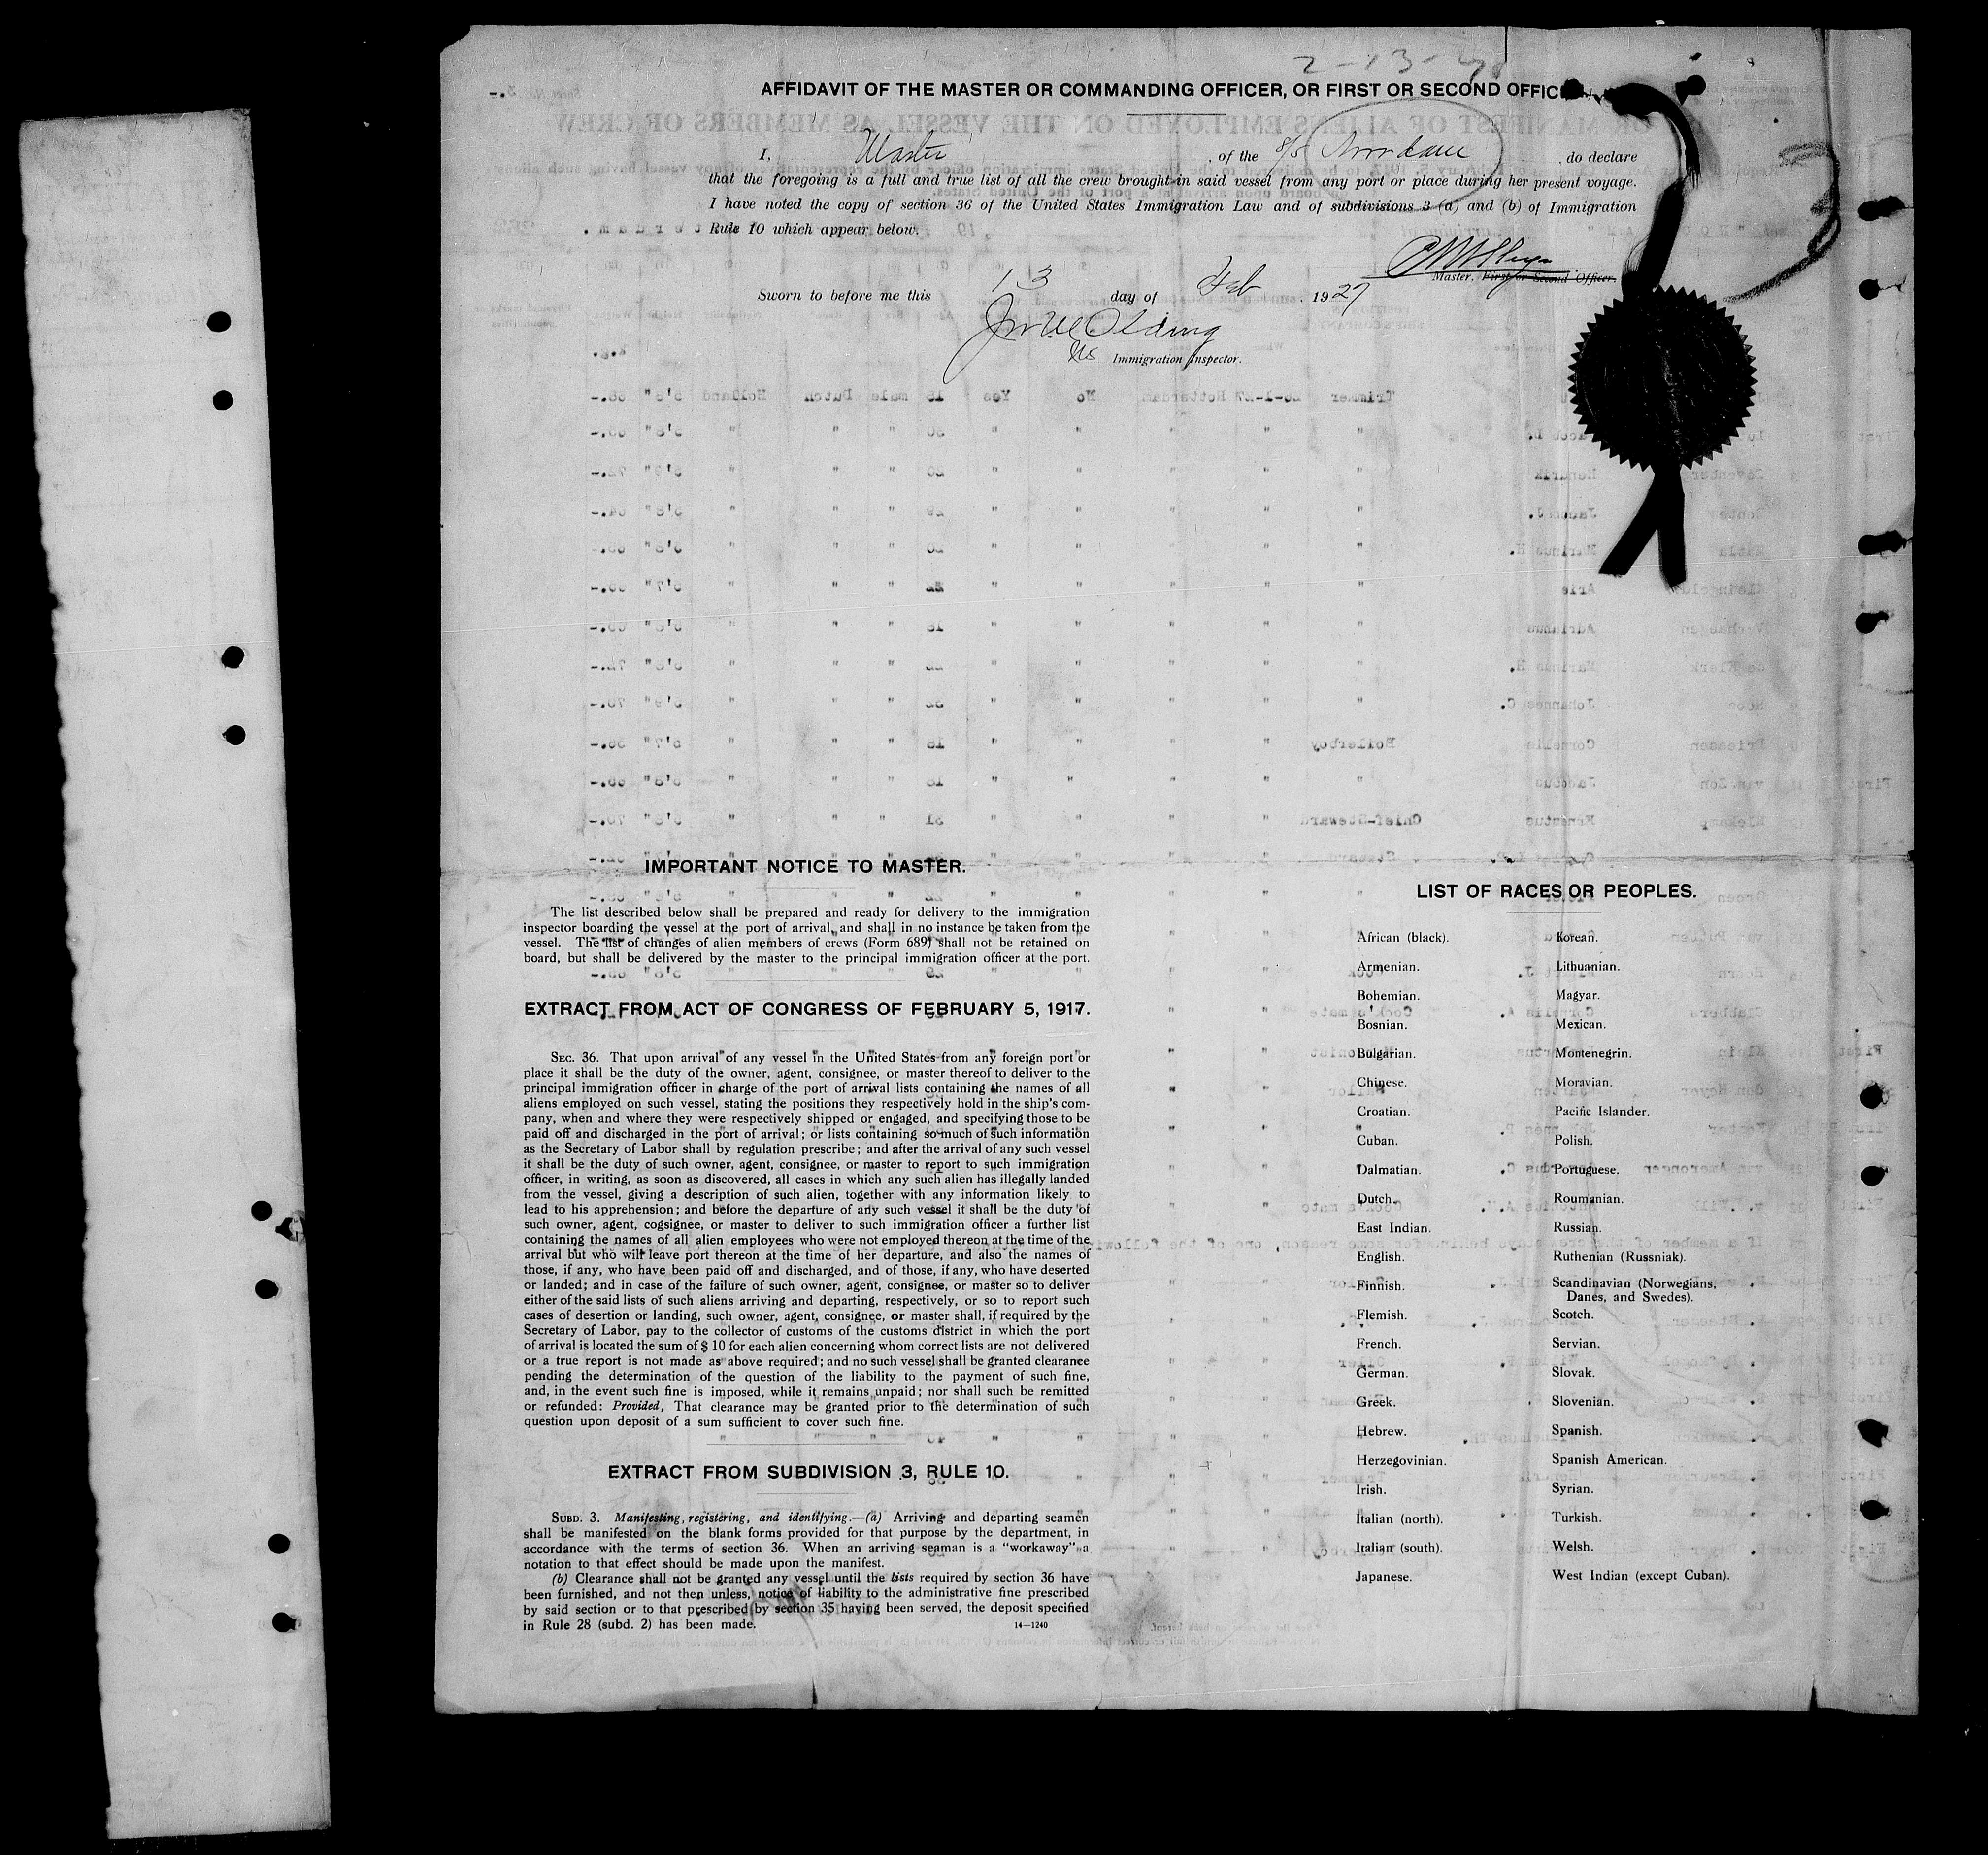 2-13-
AFFIDAVIT OF THE MASTER OR COMMANDING OFFICER, OR FIRST OR SECOND OFFIC
I, Master, of the s/s Noordam, do declare
that the foregoing is a full and true list of all the crew brought in said vessel from any port or place during her present voyage.
I have noted the copy of section 36 of the United States Immigration Law and of subdivisions 3 (a) and (b) of Immigration
Rule 10 which appear below.
Master, First or Second Officer.
Sworn to before me this 13 day of Feb, 1927
US Immigration Inspector.
IMPORTANT NOTICE TO MASTER.
The list described below shall be prepared and ready for delivery to the immigration
inspector boarding the vessel at the port of arrival, and shall in no instance be taken from the
vessel. The list of changes of alien members of crews (Form 689) shall not be retained on
board, but shall be delivered by the master to the principal immigration officer at the port.
EXTRACT FROM ACT OF CONGRESS OF FEBRUARY 5, 1917.
SEC. 36. That upon arrival of any vessel in the United States from any foreign port or
place it shall be the duty of the owner, agent, consignee, or master thereof to deliver to the
principal immigration officer in charge of the port of arrival lists containing the names of all
aliens employed on such vessel, stating the positions they respectively hold in the ship's com-
pany, when and where they were respectively shipped or engaged, and specifying those to be
paid off and discharged in the port of arrival; or lists containing so much of such information
as the Secretary of Labor shall by regulation prescribe; and after the arrival of any such vessel
it shall be the duty of such owner, agent, consignee, or master to report to such immigration
officer, in writing, as soon as discovered, all cases in which any such alien has illegally landed
from the vessel, giving a description of such alien, together with any information likely to
lead to his apprehension; and before the departure of any such vessel it shall be the duty of
such owner, agent, cogsignee, or master to deliver to such immigration officer a further list
containing the names of all alien employees who were not employed thereon at the time of the
arrival but who will leave port thereon at the time of her departure, and also the names of
those, if any, who have been paid off and discharged, and of those, if any, who have deserted
or landed; and in case of the failure of such owner, agent, consignee, or master so to deliver
either of the said lists of such aliens arriving and departing, respectively, or so to report such
cases of desertion or landing, such owner, agent, consignee, or master shall, if required by the
Secretary of Labor, pay to the collector of customs of the customs district in which the port
of arrival is located the sum of $ 10 for each alien concerning whom correct lists are not delivered
or a true report is not made as above required; and no such vessel shall be granted clearance
pending the determination of the question of the liability to the payment of such fine,
and, in the event such fine is imposed, while it remains unpaid; nor shall such be remitted
or refunded: Provided, That clearance may be granted prior to the determination of such
question upon deposit of a sum sufficient to cover such fine.
EXTRACT FROM SUBDIVISION 3, RULE 10.
SUBD. 3. Manifesting, registering, and identifying.—(a) Arriving and departing seamen
shall be manifested on the blank forms provided for that purpose by the department, in
accordance with the terms of section 36. When an arriving seaman is a "workaway" a
notation to that effect should be made upon the manifest.
(b) Clearance shall not be granted any vessel until the lists required by section 36 have
been furnished, and not then unless, notice of liability to the administrative fine prescribed
by said section or to that prescribed by section 35 having been served, the deposit specified
in Rule 28 (subd. 2) has been made.
14—1240
LIST OF RACES OR PEOPLES.
African (black).
Armenian.
Bohemian.
Bosnian.
Bulgarian.
Chinese.
Croatian.
Cuban.
Dalmatian.
Dutch.
East Indian.
English.
Finnish.
Flemish.
French.
German.
Greek.
Hebrew.
Herzegovinian.
Irish.
Italian (north).
Italian (south).
Japanese.
Korean.
Lithuanian.
Magyar.
Mexican.
Montenegrin.
Moravian.
Pacific Islander.
Polish.
Portuguese.
Roumanian.
Russian.
Ruthenian (Russniak).
Scandinavian (Norwegians,
Danes, and Swedes).
Scotch.
Servian.
Slovak.
Slovenian.
Spanish.
Spanish American.
Syrian.
Turkish.
Welsh.
West Indian (except Cuban).